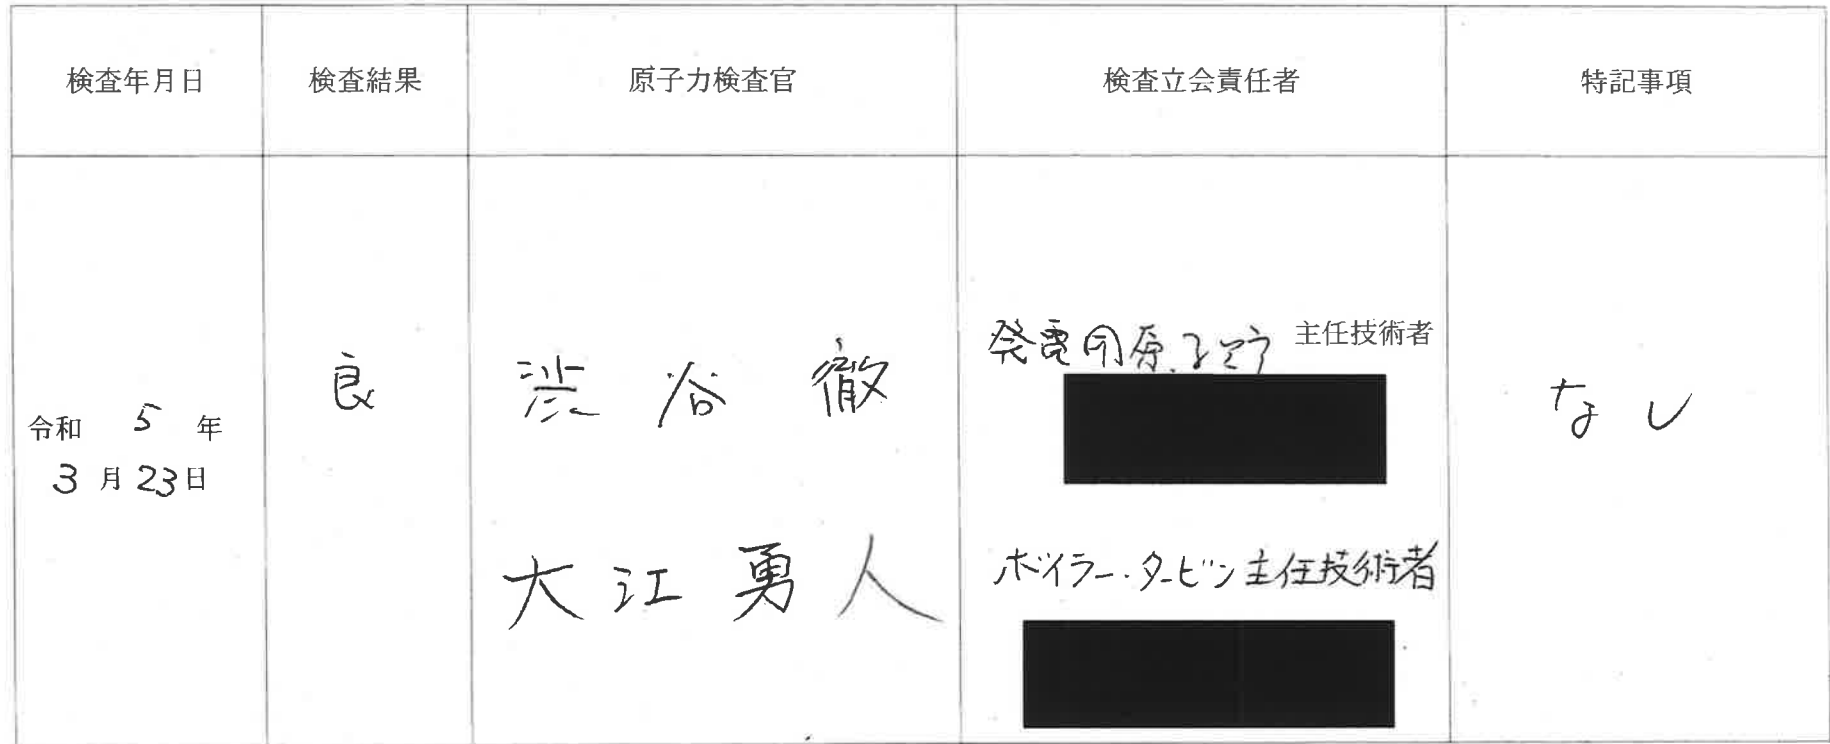 検査年月日 検査結果 原子力検査官 検査立会責任者 特記事項
令和 5 年
3 月 23 日
良
渋谷 徹
大江 勇人
発電用原子炉 主任技術者
ボイラー・タービン主任技術者
なし